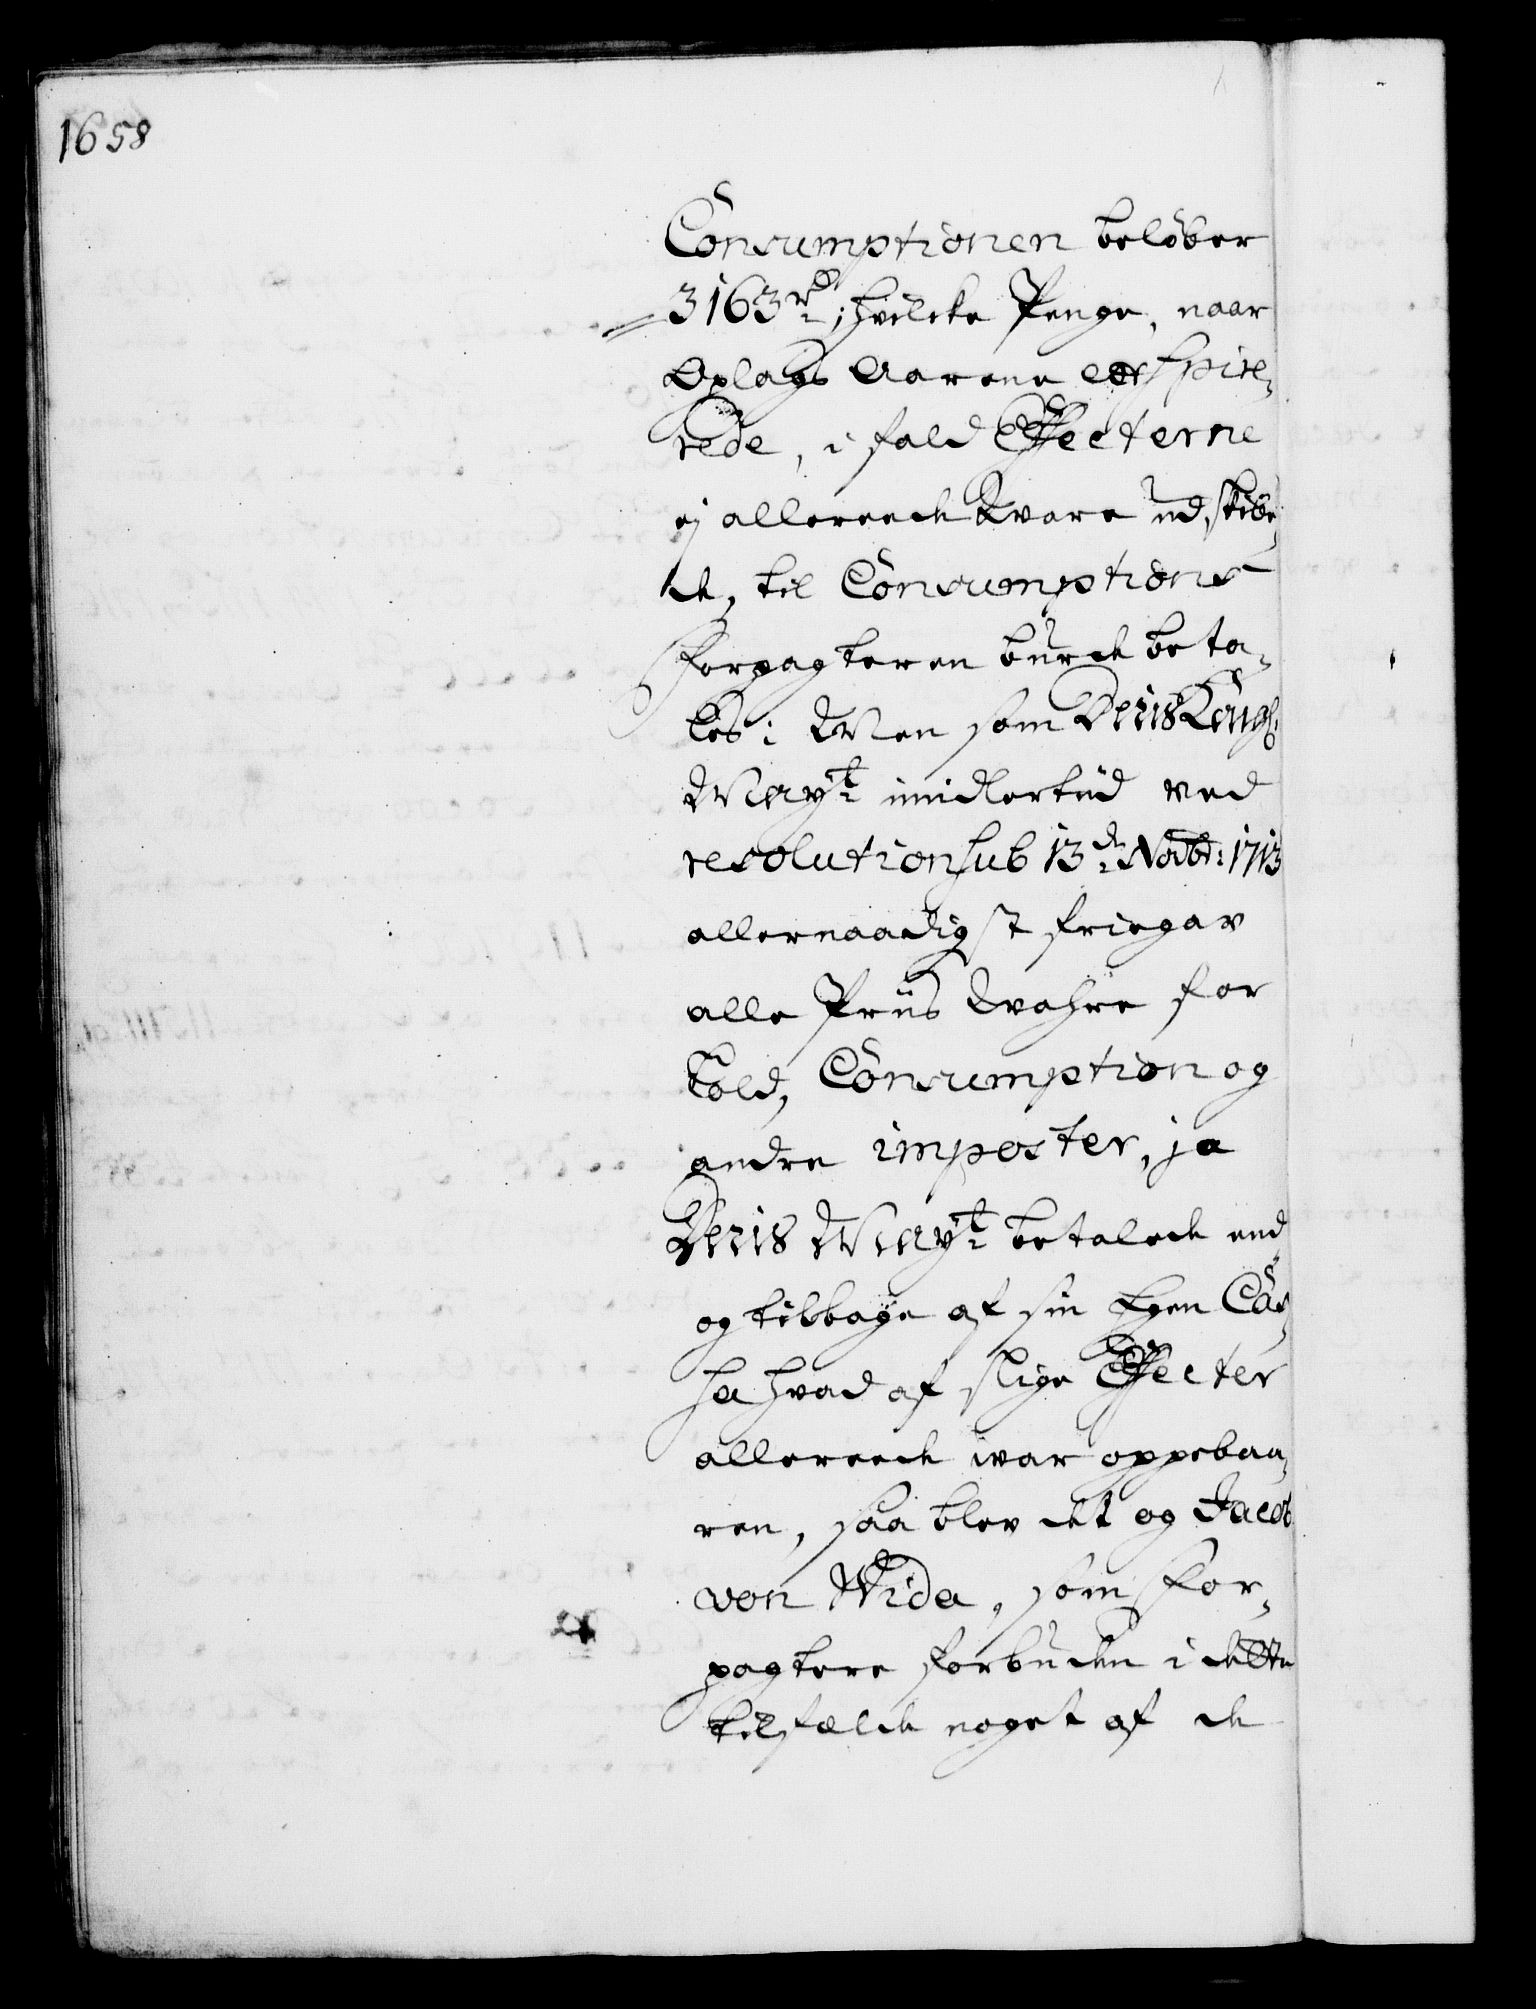 1658
Consumptionen beløber
3163 rd; hvilcke Penge, naar
Oplags Aarene exspire-
rede, i fald Effecterne
ej allereede vare udskibe-
de, til Consumptions
forpagteren burde beta-
les; Men som Deris Kongl:
Mayt imidlertiid ved
resolution sub 13de Novbr: 1713
allernaadigst friegav
alle Priis Wahre for
Told, Consumption og
andre imposter, ja
Deris Mayt betalede end
og tilbage af sin Egen Cas-
sa hvad af slige Effecter
allereede war oppebaa-
ren, saa blev det og Jacob
von Wida, som For-
pagtere forbuden i dette
tilfælde noget af de